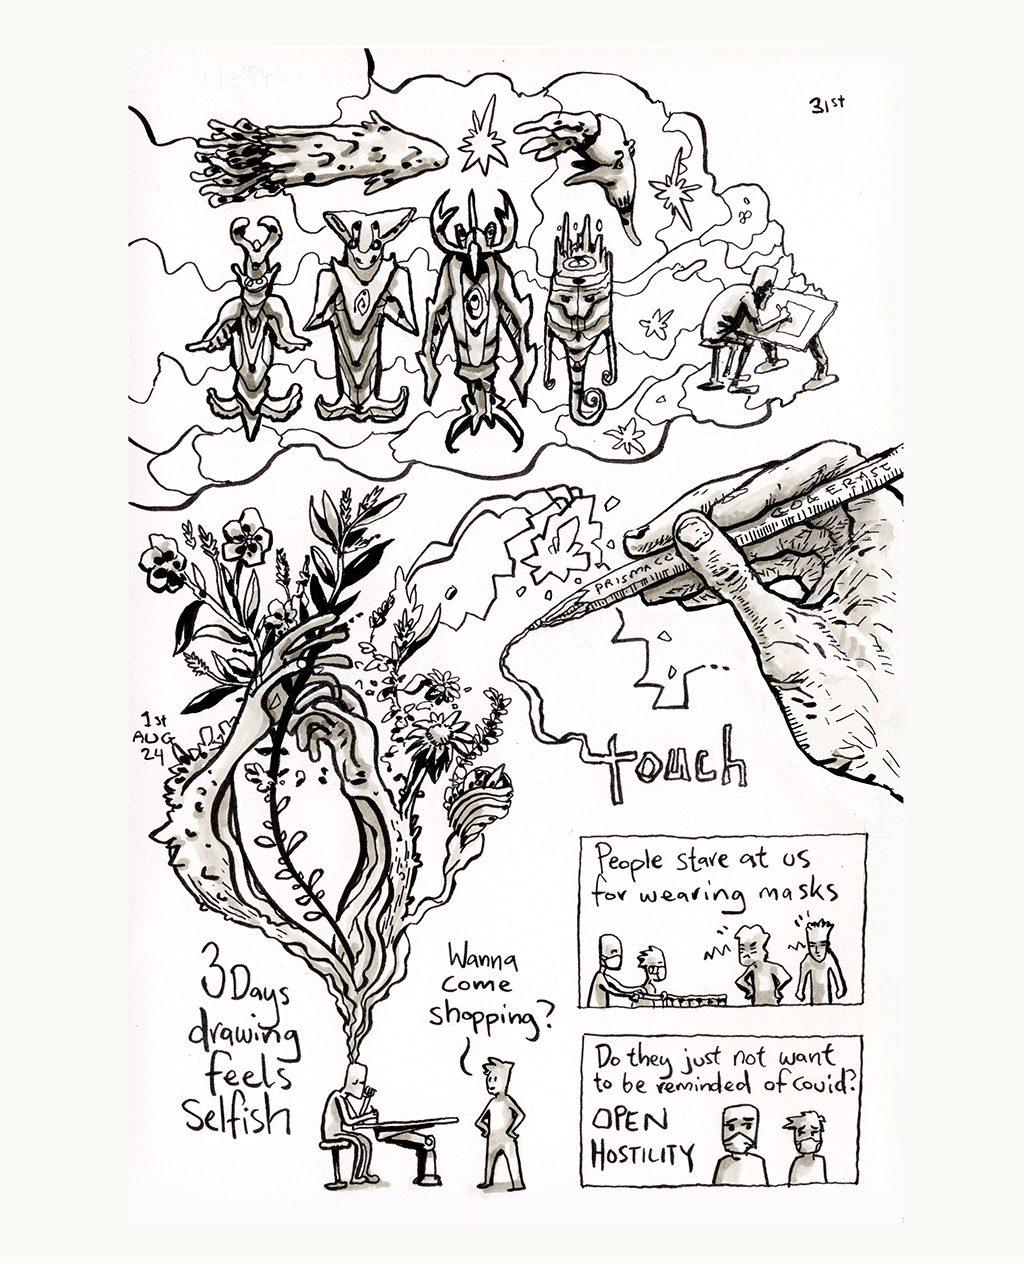 31st
COL ERASE
PRISMACO
touch
1st
AUG
24
3 Days
drawing
feels
Selfish
Wanna
come
shopping?
People stare at us
for wearing masks
Do they just not want
to be reminded of covid?
OPEN
HOSTILITY